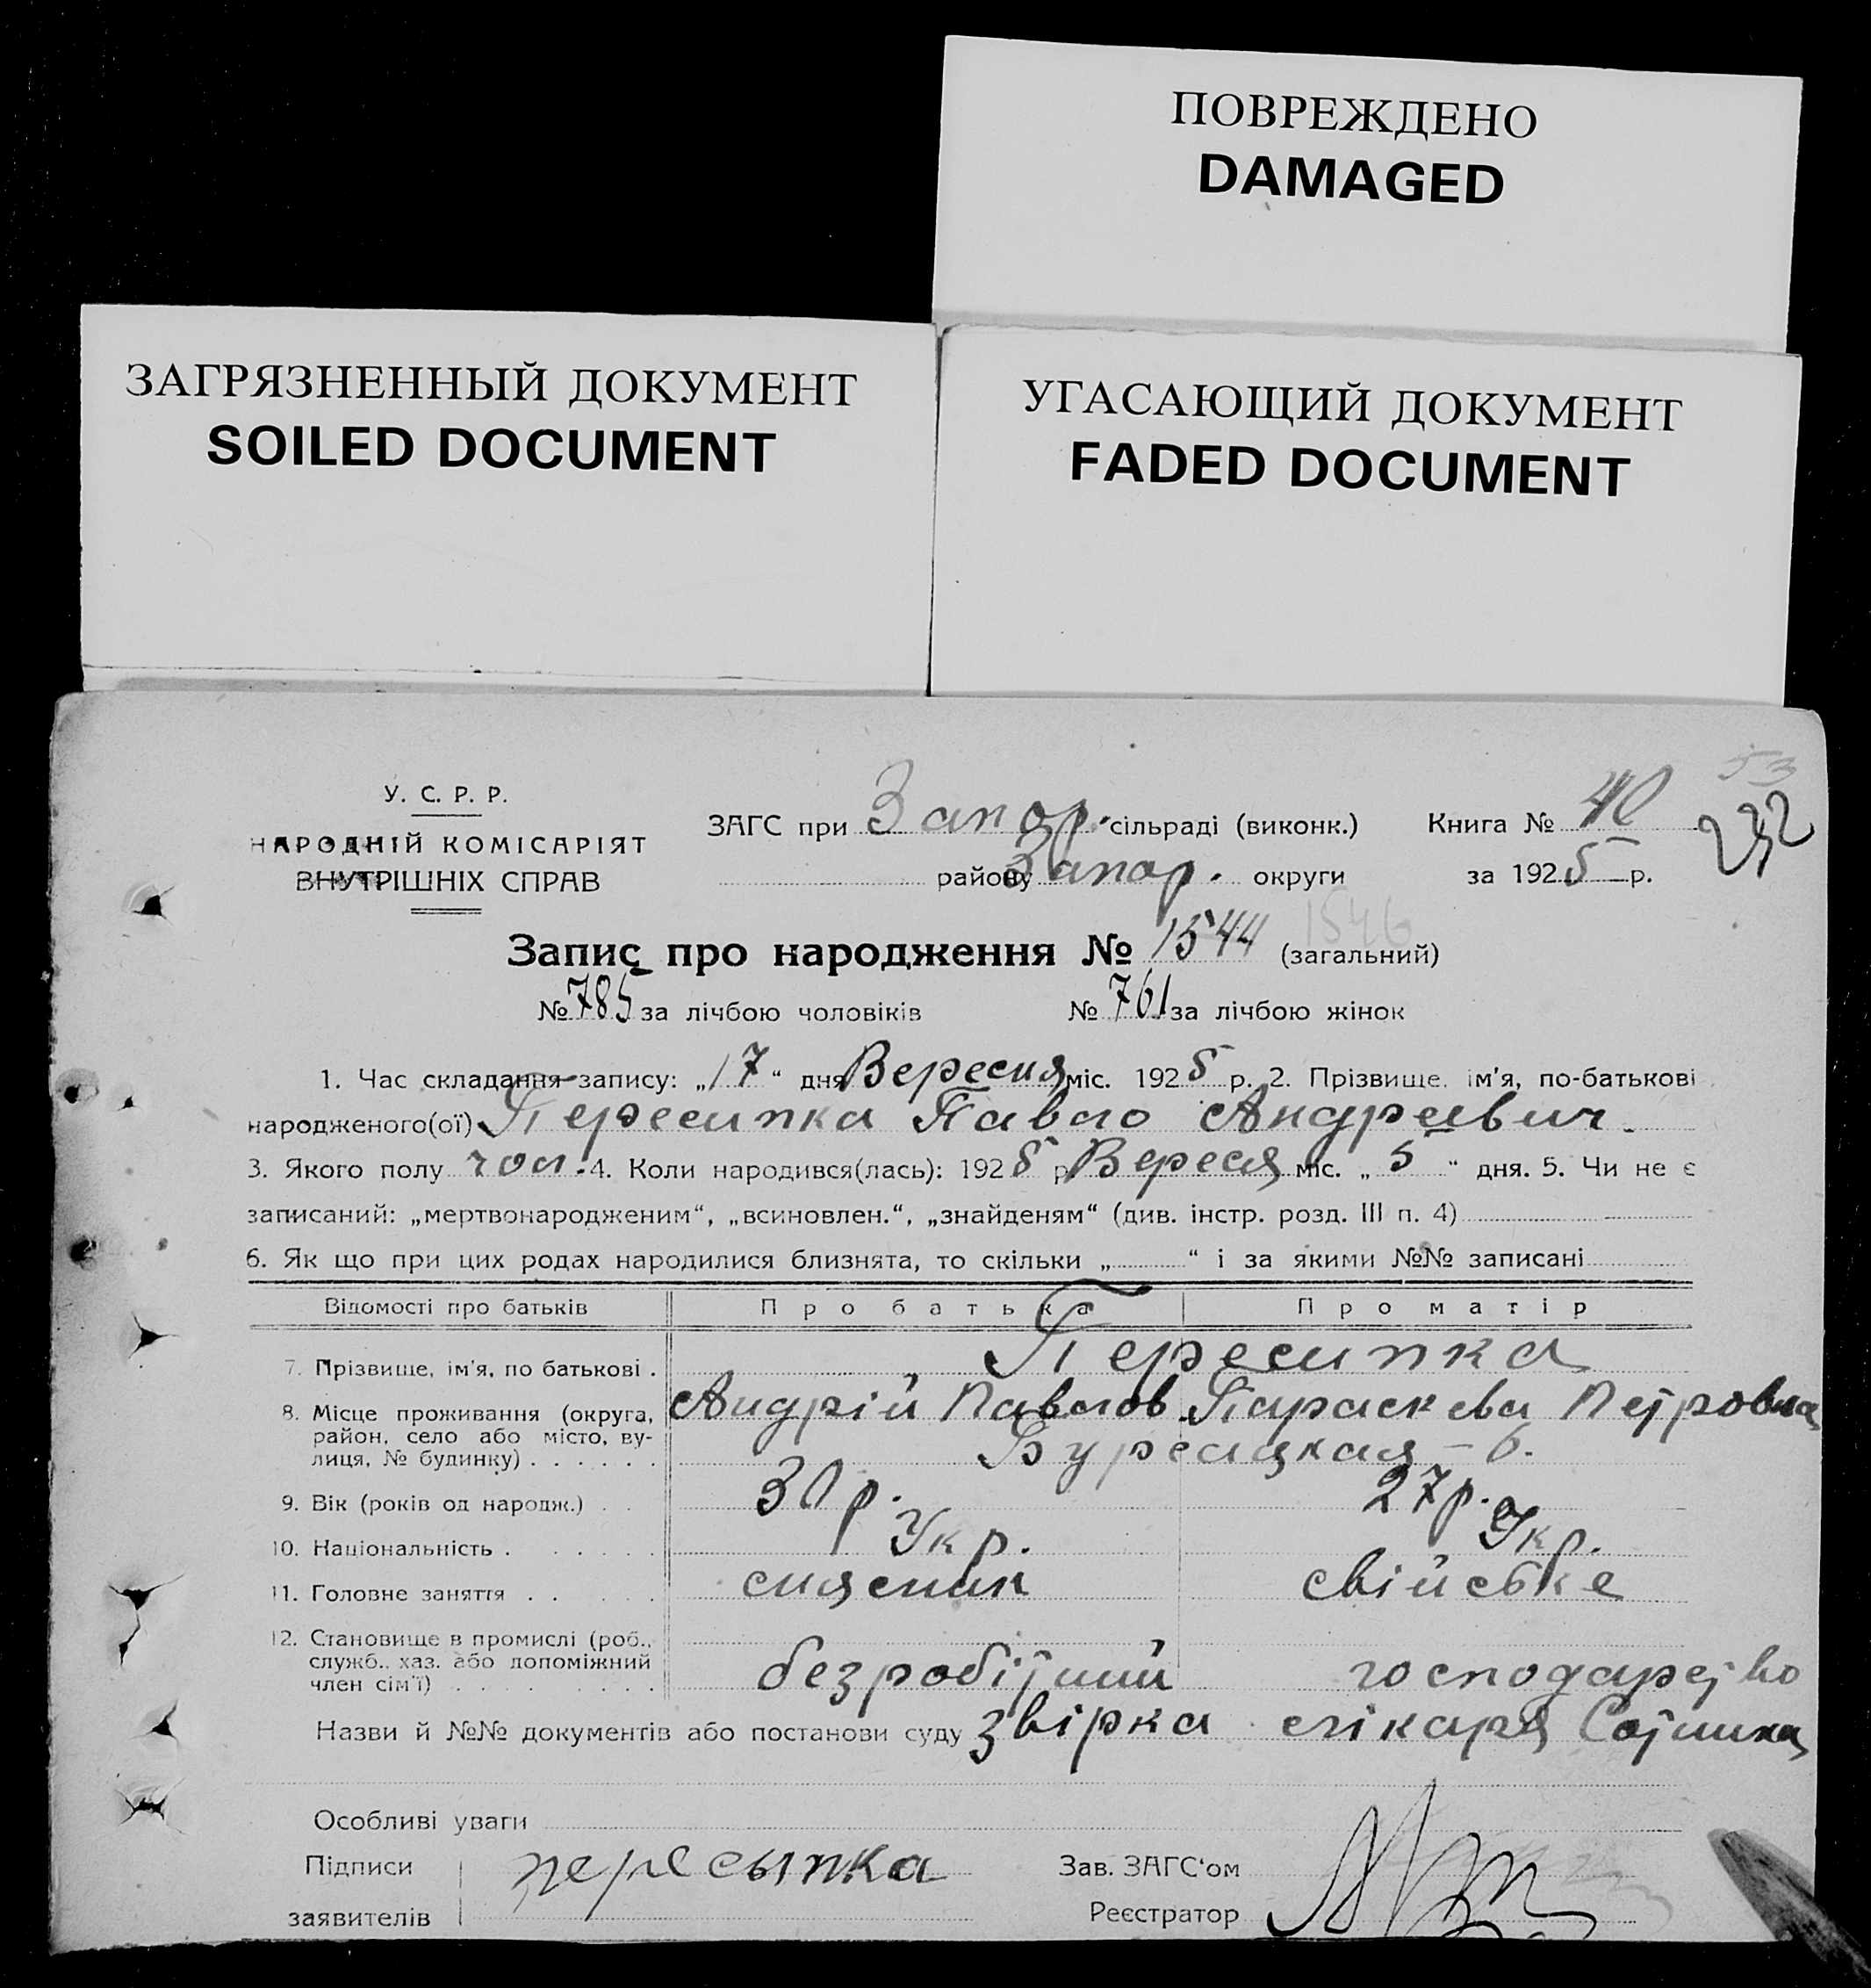 ПОВРЕЖДЕНО
DAMAGED
ЗАГРЯЗНЕННЫЙ ДОКУМЕНТ
SOILED DOCUMENT
УГАСАЮЩИЙ ДОКУМЕНТ
FADED DOCUMENT
53
232
У. С. Р. Р.
НАРОДНІЙ КОМІСАРІЯТ
ВНУТРІШНІХ СПРАВ
ЗАГС при Запор. сільраді (виконк.) Книга № 40
району Запор. округи за 1925 р.
Запис про народження № 1544 (загальний) 1546
№ 785 за лічбою чоловіків № 761 за лічбою жінок
1. Час складання запису: „17“ дня Вересня міс. 1925 р. 2. Прізвище, ім'я, по-батькові
народженого(ої) Пересипка Павло Андреевич.
3. Якого полу чол. 4. Коли народився(лась): 1925 р. Вереся міс. „5“ дня. 5. Чи не є
записаний: „мертвонародженим“, „всиновлен.“, „знайденям“ (див. інстр. розд. III п. 4)
6. Як що при цих родах народилися близнята, то скільки „ “ і за якими №№ записані
Відомості про батьків Про батька Про матір
7. Прізвище, ім'я, по батькові . Пересипка
Андрій Павлов Параскева Петровна
8. Місце проживання (округа,
район, село або місто, ву-
лиця, № будинку) . . . . . . – 6.
9. Вік (років од народж.) . . 30 р. 27 р.
10. Національність . . . . . . Укр. Укр.
11. Головне заняття . . . . . свійське
12. Становище в промислі (роб.,
служб., хаз. або допоміжний
член сім'ї) . . . . . . . . безробітний господарство
Назви й №№ документів або постанови суду звірка лікаря
Особливі уваги
Підписи
заявителів
пересыпка
Зав. ЗАГС'ом
Реєстратор